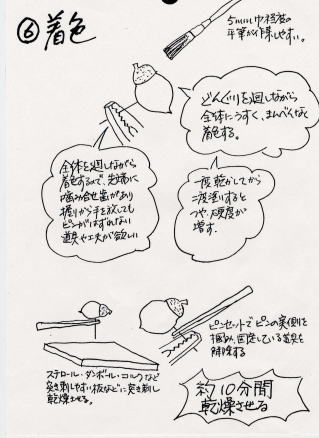 ⑥着色
5mm巾程度の
平筆が作業しやすい。
どんぐりを廻しながら
全体にうすく、まんべんなく
着色する。
全体を廻しながら
着色するので、先端に
噛み合せ歯があり
握りから手を放しても
ピンがはずれない
道具や工夫が欲しい
一度乾かしてから
二度塗りすると
つや、硬度が
増す.
ステロール・ダンボール・コルクなど
突き刺しやすい板などに突き刺し
乾燥させる。
ピンセットでピンの実側を
掴み、固定している道具を
解除する
約10分間
乾燥させる